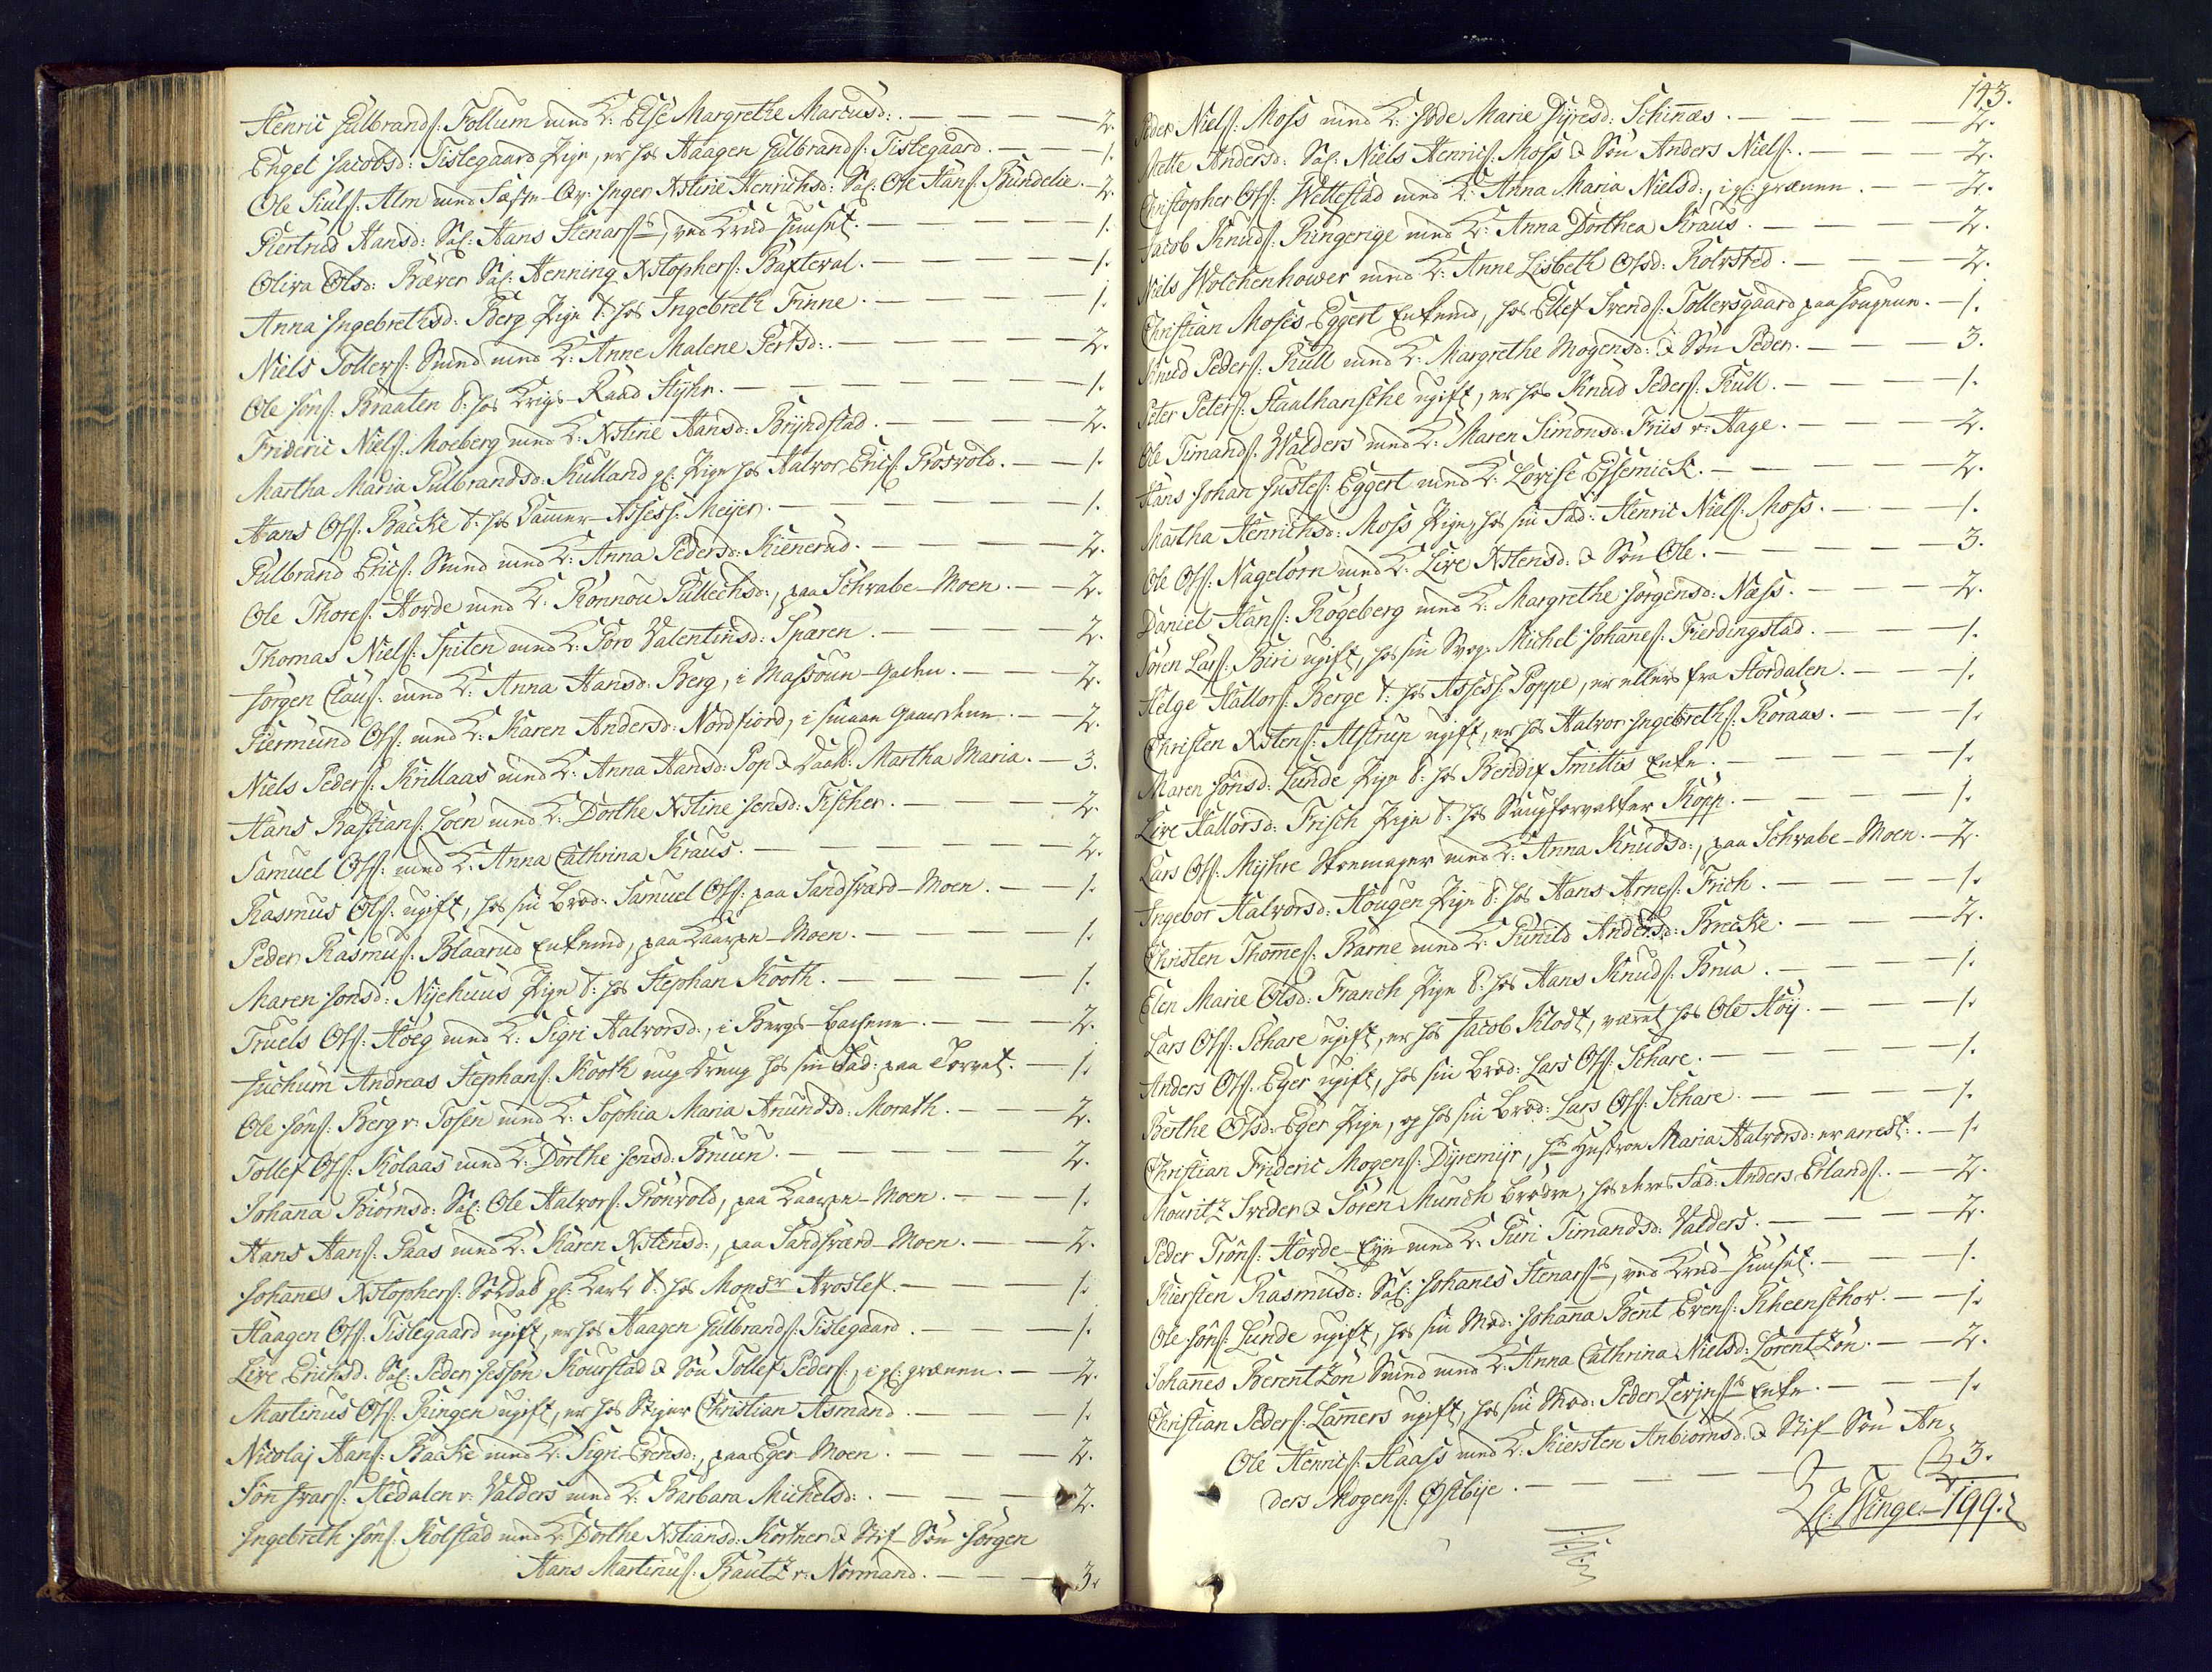 Henric Gulbrands: Follum med K: Else Margrethe Marcusd: — 2.
Engel Jacobsd: Tislegaard Pige, er hos Haagen Gulbrands: Tislegaard. — 1.
Ole Siuls: Alm med Fæste-Qv: Inger Xstine Henrichsd: Sal: Ole Hans: Bundelie. — 2.
Giertrud Hansd: Sal: Hans Stenars:, ved Krud-Huuset. — 1.
Oliva Olsd: Bæver Sal: Henning Xstophers: Baxteval. — 1.
Anna Ingebrethsd: Berg Pige t: hos Ingebreth Finne. — 1.
Niels Tollers: Smed med K: Anne Malene Pertsd: — 2.
Ole Jöns: Braaten t: hos Krigs-Raad Styhr. — 1.
Frideric Niels: Moeberg med K: Xstine Hansd: Bryndstad. — 2.
Martha Maria Gulbrandsd: Kulland gl: Pige hos Halvor Erics: Prosvold. — 1.
Hans Ols: Backe t: hos Cammer-Assess: Meijer. — 1.
Gulbrand Erics: Smed med K: Anna Pedersd: Kiennerud. — 2.
Ole Thores: Horde med K: Rönnou Gullechsd:, paa Schwabe-Moen. — 2.
Thomas Niels: Spiten med K: Goro Valentinsd: Sparen. — 2.
Jörgen Claus: med K: Anna Hansd: Berg, i Massoun-Gaden. — 2.
Giermund Ols: med K: Karen Andersd: Nordfiord, i smaae Gaardene. — 2.
Niels Peders: Krillaas med K: Anna Hansd: Pop & Datt: Martha Maria. — 3.
Hans Bastians: Loen med K: Dorthe Xstine Jensd: Fischer. — 2.
Samuel Ols: med K: Anna Cathrina Kraus. — 2.
Rasmus Ols: ugift, hos sin Brod: Samuel Ols: paa Sandsværd-Moen. — 1.
Peder Rasmus: Blaarud Enkemd, paa Kaarpe-Moen. — 1.
Maren Jonsd: Nyehuus Pige t: hos Stephan Kooth. — 1.
Truels Ols: Höeg med K: Sigri Halvorsd:, i Bergs-Bachene. — 2.
Juchum Andreas Stephans: Kooth ung Dreng hos sin Fad: paa Torvet. — 1.
Ole Jöns: Berg v: Tosen med K: Sophia Maria Anundsd: Morath. — 2.
Tollef Ols: Kolaas med K: Dorthe Jensd: Bruun. — 2.
Johanna Biörnsd: Sal: Ole Halvors: Prönvold, paa Kaarpe-Moen. — 1.
Hans Hans: Gaas med K: Karen Xstensd:, paa Sandsværd-Moen. — 2.
Johanes Xstophers: Soldad gl: Karl t: hos Monsr Avoslef. — 1.
Haagen Ols: Tislegaard ugift, er hos Haagen Gulbrands: Tislegaard. — 1.
Live Erichsd: Sal: Peder Jesson Kourstad & Sön Tollef Peders:, i gl: grænen. — 2.
Martinus Ols: Ringen ugift, er hos Stiger Christian Asmand. — 1.
Nicolaj Hans: Backe med K: Sigri Evensd:, paa Eger-Moen. — 2.
Jön Ivars: Hedalen v: Valders med K: Barbara Michelsd: — 2.
Ingebreth Jöns: Kolstad med K: Dorthe Xstiansd: Kortner & Stif-Sön Jörgen
Hans Martinus: Bautz v: Normand. — 3.
143.
Peder Niels: Moss med K: Hode Marie Dyresd: Schinnes. — 2.
Mette Andersd: Sal: Niels Henrics: Moss & Sön Anders Niels: — 2.
Christopher Ols: Wettestad med K: Anna Maria Nielsd:, i gl: grænen. — 2.
Jacob Knuds: Ringerige med K: Anna Dorthea Kraus. — 2.
Niels Wolchenhower med K: Anne Lisbeth Olsd: Kolvsted. — 2.
Christian Moses Eggert Enkemd, hos Ellef Svends: Tollersgaard paa Hougene. — 1.
Knud Peders: Kull med K: Margrethe Mogensd: & Sön Peder. — 3.
Peter Peters: Staalhansche ugift, er hos Knud Peders: Kull. — 1.
Ole Timands: Walders med K: Maren Simonsd: Friis v: Hage. — 2.
Hans Johan Justes: Eggert med K: Lovise Ejsemick. — 2.
Martha Henrichsd: Moss Pige, hos sin Fad: Henric Niels: Moss. — 1.
Ole Ols: Nagelörn med K: Live Xstensd: & Sön Ole. — 3.
Daniel Hans: Rögeberg med K: Margrethe Jörgensd: Næss. — 2.
Sören Lars: Biri ugift, hos sin Svog: Michel Johanes: Fierdingstad. — 1.
Helge Hallors: Berge t: hos Assess: Poppe, er ellers fra Hordalen. — 1.
Christen Xstens: Alstrup ugift, er hos Halvor Ingebreths: Roraas. — 1.
Maren Jönsd: Lunde Pige t: hos Bendix Smittis Enke. — 1.
Live Hallorsd: Frisch Pige t: hos Saugforvalter Kopp. — 1.
Lars Ols: Myhre Skomager med K: Anna Knudsd:, paa Schwabe-Moen. — 2.
Ingebor Halvorsd: Hougen Pige t: hos Hans Arnes: Frich. — 1.
Christen Thomes: Barne med K: Gunild Andersd: Brecke. — 2.
Elen Marie Olsd: Franch Pige t: hos Hans Knuds: Brua. — 1.
Lars Ols: Schare ugift, er hos Jacob Klodt, været hos Ole Höy. — 1.
Anders Ols: Eger ugift, hos sin Brod: Lars Ols: Schare. — 1.
Berthe Olsd: Eger Pige, og hos sin Brod: Lars Ols: Schare. — 1.
Christian Frideric Mogens: Dyremyr, hs Hustroe Maria Halvorsd: er arrest: — 1.
Mouritz Sveder & Sören Munch Brödre, hos deres Fad: Anders Erlands: — 2.
Peder Tröns: Horde-Eye med K: Guri Timandsd: Valders. — 2.
Kiersten Rasmusd: Sal: Johanes Stenars:, ved Krud-Huuset. — 1.
Ole Jöns: Lunde ugift, hos sin Mod: Johanna Bent Evens: Rheenschov. — 1.
Johanes Berentzön Smed med K: Anna Cathrina Nielsd: Lorentzön. — 2.
Christian Peders: Lamers ugift, hos sin Mod: Peder Levins: Enke. — 1.
Ole Henrics: Haass med K: Kiersten Anbiörnsd: & Stif-Sön An-
ders Mogens: Østbye. — 3.
Winge — 199.